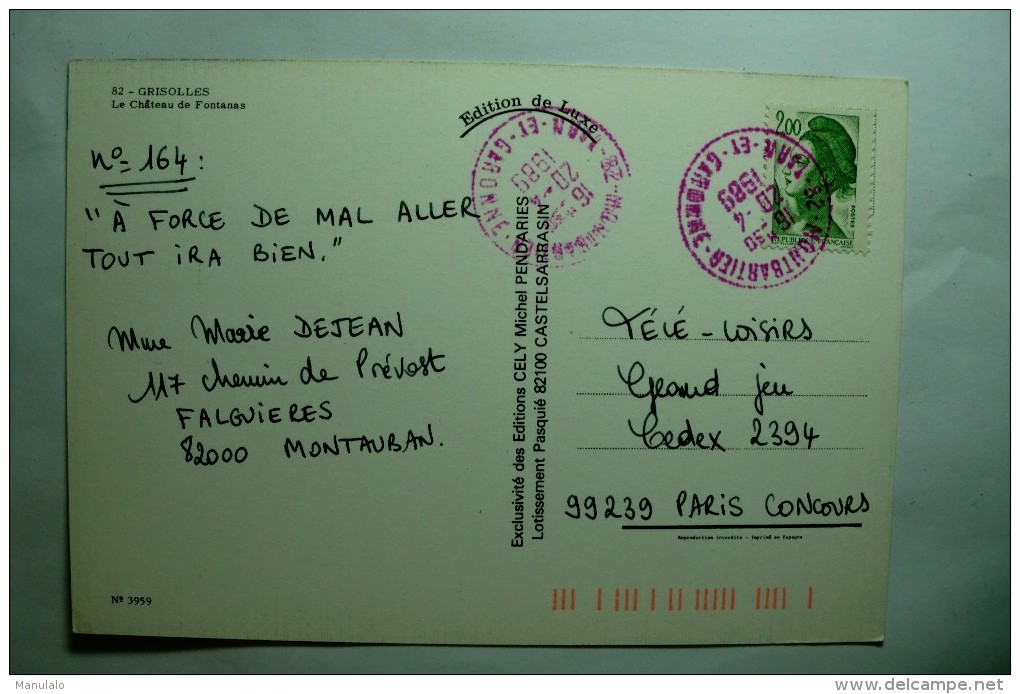 82 - GRISOLLES
Le Château de Fontanas
Edition de Luxe
nº 164 :
"À FORCE DE MAL ALLER
TOUT IRA BIEN."
Mme Marie DEJEAN
117 chemin de Prévost
FALGUIERES
82000 MONTAUBAN.
Nº 3959
Exclusivité des Editions CELY Michel PENDARIES
Lotissement Pasquié 82100 CASTELSARRASIN
82 - MONTBARTIER
TARN-ET-GARONNE
16 H 30
20 - 4
1989
2,00
POSTES
REPUBLIQUE FRANÇAISE
82 - MONTBARTIER
TARN-ET-GARONNE
16 H 30
20 - 4
1989
TÉLÉ-LOISIRS
Grand jeu
Cedex 2394
99239 PARIS CONCOURS
Reproduction interdite - Imprimé en Espagne
Manulalo
delcampe.net